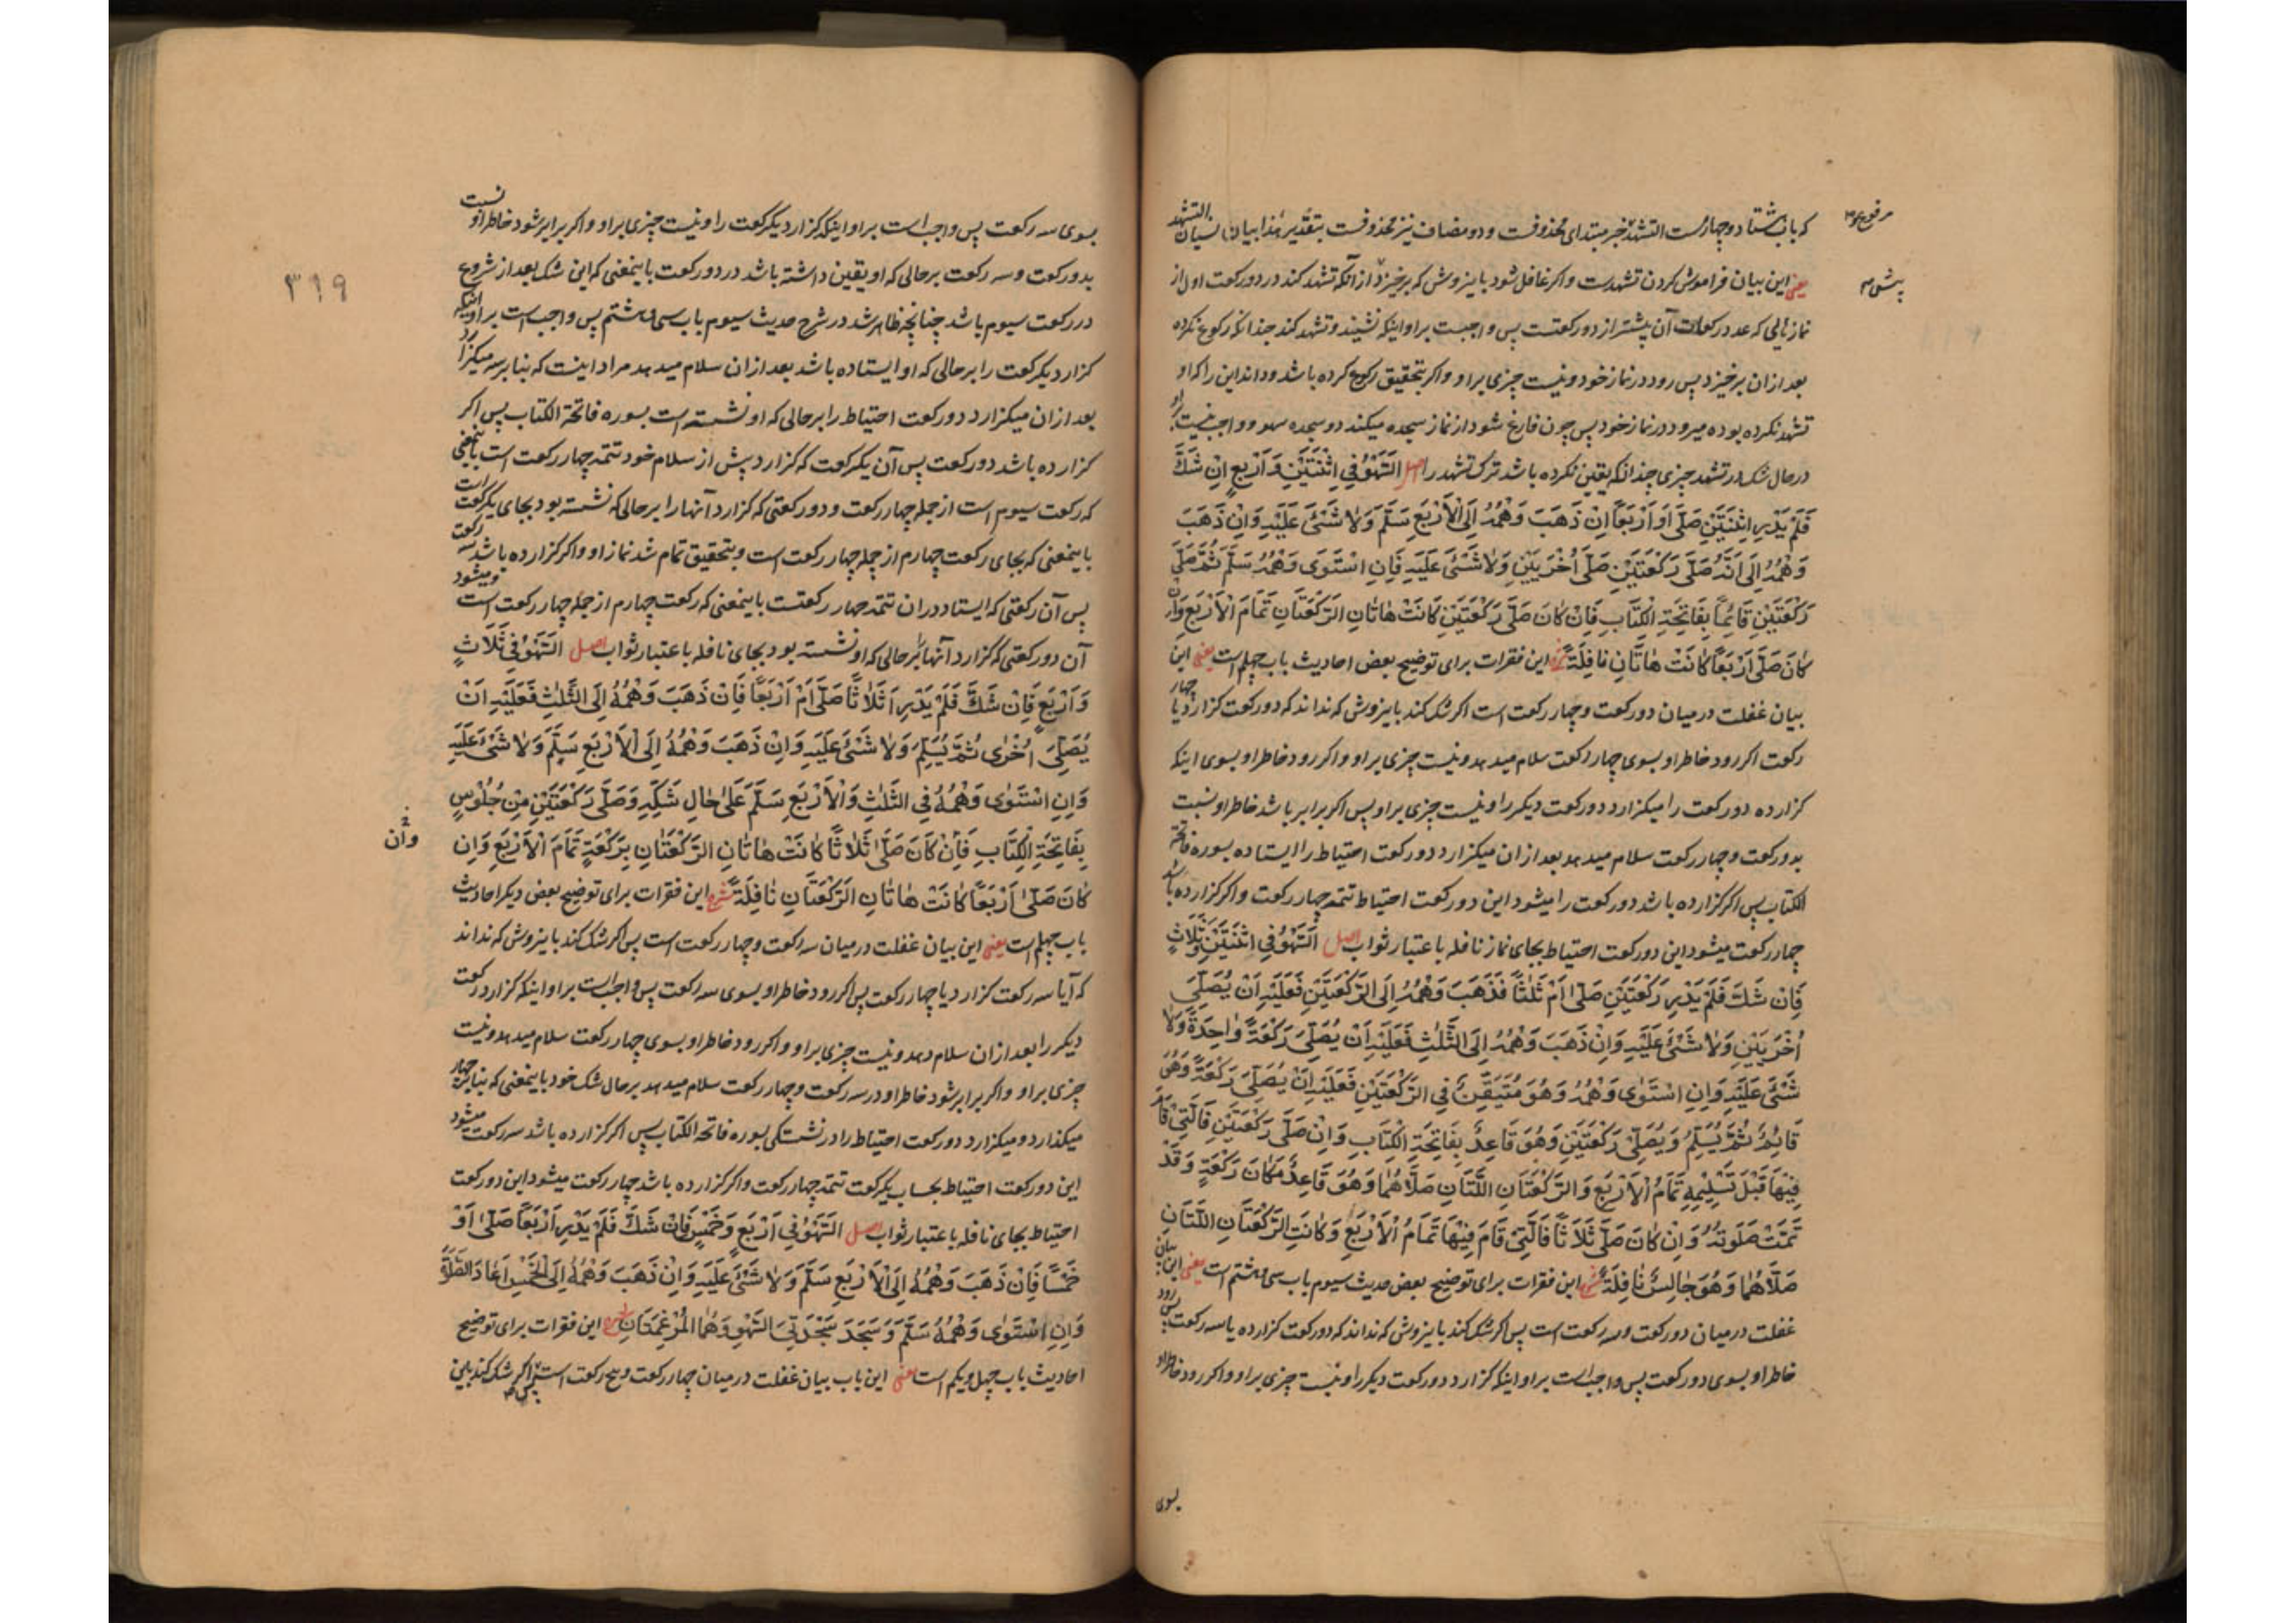 که باب هشتاد و چهارمست التشهد خبر مبتدای محذوفست و دو مضاف نیز محذوفست بتقدیر هذا بیان نسیان التشهد
مرفوع
یعنی این بیان فراموش کردن تشهدست و اگر غافل شود باینروش که برخیزد از آنکه تشهد کند در دو رکعت اول از
پیش
نمازهائی که عدد رکعات آن بیشتر از دو رکعتست پس واجبست بر او اینکه نشیند و تشهد کند چندانکه رکوع نکرده
بعد ازان برخیزد پس رود در نماز خود و نیست چیزی بر او و اگر بتحقیق رکوع کرده باشد و داند این را که او
تشهد نکرده بوده میرود در نماز خود پس چون فارغ شود از نماز سجده میکند دو سجده سهو و واجب نیست بر او
در حال شک در تشهد چیزی چندانکه یقین نکرده باشد ترک تشهد را اصل السَّهْوُ فِي اثْنَتَيْنِ وَأَرْبَعٍ اِنْ شَكَّ
فَلَمْ يَدْرِ اثْنَتَيْنِ صَلَّى أَوْ أَرْبَعًا اِنْ ذَهَبَ وَهْمُهُ اِلَى الْأَرْبَعِ سَلَّمَ وَلَا شَيْءَ عَلَيْهِ وَاِنْ ذَهَبَ
وَهْمُهُ اِلَى اَنَّهُ صَلَّى رَكْعَتَيْنِ صَلَّى أُخْرَيَيْنِ وَلَا شَيْءَ عَلَيْهِ فَاِنِ اسْتَوَى وَهْمُهُ سَلَّمَ ثُمَّ صَلَّى
رَكْعَتَيْنِ قَائِمًا بِفَاتِحَةِ الْكِتَابِ فَاِنْ كَانَ صَلَّى رَكْعَتَيْنِ كَانَتْ هَاتَانِ الرَّكْعَتَانِ تَمَامَ الْأَرْبَعِ وَاِنْ
كَانَ صَلَّى أَرْبَعًا كَانَتْ هَاتَانِ نَافِلَةً شرح این فقرات برای توضیح بعض احادیث باب چهلم است یعنی این
بیان غفلت در میان دو رکعت و چهار رکعت است اگر شک کند باینروش که نداند که دو رکعت گزارد یا چهار
رکعت اگر رود خاطر او بسوی چهار رکعت سلام میدهد و نیست چیزی بر او و اگر رود خاطر او بسوی اینکه
گزارده دو رکعت را میگزارد دو رکعت دیگر را و نیست چیزی بر او پس اگر برابر باشد خاطر او نسبت
بدو رکعت و چهار رکعت سلام میدهد بعد ازان میگزارد دو رکعت احتیاط را ایستاده بسوره فاتحة
الکتاب پس اگر گزارده باشد دو رکعت را میشود این دو رکعت احتیاط تتمه چهار رکعت و اگر گزارده باشد
چهار رکعت میشود این دو رکعت احتیاط بجای نماز نافله باعتبار ثواب اصل السَّهْوُ فِي اثْنَتَيْنِ وَثَلَاثٍ
فَاِنْ شَكَّ فَلَمْ يَدْرِ رَكْعَتَيْنِ صَلَّى أَمْ ثَلَاثًا فَذَهَبَ وَهْمُهُ اِلَى الرَّكْعَتَيْنِ فَعَلَيْهِ اَنْ يُصَلِّيَ
أُخْرَيَيْنِ وَلَا شَيْءَ عَلَيْهِ وَاِنْ ذَهَبَ وَهْمُهُ اِلَى الثَّلَاثِ فَعَلَيْهِ اَنْ يُصَلِّيَ رَكْعَةً وَاحِدَةً وَلَا
شَيْءَ عَلَيْهِ وَاِنِ اسْتَوَى وَهْمُهُ وَهُوَ مُتَيَقِّنٌ فِي الرَّكْعَتَيْنِ فَعَلَيْهِ اَنْ يُصَلِّيَ رَكْعَةً وَهُوَ
قَائِمٌ ثُمَّ يُسَلِّمُ وَيُصَلِّي رَكْعَتَيْنِ وَهُوَ قَاعِدٌ بِفَاتِحَةِ الْكِتَابِ وَاِنْ صَلَّى رَكْعَتَيْنِ فَالَّتِي قَامَ
فِيهَا قَبْلَ تَسْلِيمِهِ تَمَامُ الْأَرْبَعِ وَالرَّكْعَتَانِ اللَّتَانِ صَلَّاهُمَا وَهُوَ قَاعِدٌ مَكَانَ رَكْعَةٍ وَقَدْ
تَمَّتْ صَلَوتُهُ وَاِنْ كَانَ صَلَّى ثَلَاثًا فَالَّتِي قَامَ فِيهَا تَمَامُ الْأَرْبَعِ وَكَانَتِ الرَّكْعَتَانِ اللَّتَانِ
صَلَّاهُمَا وَهُوَ جَالِسٌ نَافِلَةً شرح این فقرات برای توضیح بعض حدیث سیوم باب سی و هشتم است یعنی این بیان
غفلت در میان دو رکعت و سه رکعت است پس اگر شک کند باینروش که نداند که دو رکعت گزارده یا سه رکعت پس رود
خاطر او بسوی دو رکعت پس واجب است بر او اینکه گزارد دو رکعت دیگر را و نیست چیزی بر او و اگر رود خاطر او
بسوی
۳۱۹
بسوی سه رکعت پس واجب است بر او اینکه گزارد یکرکعت را و نیست چیزی بر او و اگر برابر شود خاطر او نسبت
بدو رکعت و سه رکعت بر حالی که او یقین داشته باشد در دو رکعت باینمعنی که این شک بعد از شروع
در رکعت سیوم باشد چنانچه ظاهر شد در شرح حدیث سیوم باب سی و هشتم پس واجب است بر او اینکه
گزارد یکرکعت را بر حالی که او ایستاده باشد بعد ازان سلام میدهد مراد اینست که بنا بر سه میگزارد
بعد ازان میگزارد دو رکعت احتیاط را بر حالی که او نشسته است بسوره فاتحة الکتاب پس اگر
گزارده باشد دو رکعت پس آن یکرکعت که گزارد پیش از سلام خود تتمه چهار رکعت است باینمعنی
که رکعت سیوم است از جمله چهار رکعت و دو رکعتی که گزارد آنها را بر حالی که نشسته بود بجای یکرکعت است
باینمعنی که بجای رکعت چهارم از جمله چهار رکعت است و بتحقیق تمام شد نماز او و اگر گزارده باشد سه رکعت
پس آن رکعتی که ایستاد دران تتمه چهار رکعتست باینمعنی که رکعت چهارم از جمله چهار رکعت است و میشود
آن دو رکعتی که گزارد آنها را بر حالی که او نشسته بود بجای نافله باعتبار ثواب اصل السَّهْوُ فِي ثَلَاثٍ
وَأَرْبَعٍ فَاِنْ شَكَّ فَلَمْ يَدْرِ اَثَلَاثًا صَلَّى أَمْ أَرْبَعًا فَاِنْ ذَهَبَ وَهْمُهُ اِلَى الثَّلَاثِ فَعَلَيْهِ اَنْ
يُصَلِّيَ أُخْرَى ثُمَّ يُسَلِّمَ وَلَا شَيْءَ عَلَيْهِ وَاِنْ ذَهَبَ وَهْمُهُ اِلَى الْأَرْبَعِ سَلَّمَ وَلَا شَيْءَ عَلَيْهِ
وَاِنِ اسْتَوَى وَهْمُهُ فِي الثَّلَاثِ وَالْأَرْبَعِ سَلَّمَ عَلَى حَالِ شَكِّهِ وَصَلَّى رَكْعَتَيْنِ مِنْ جُلُوسٍ
بِفَاتِحَةِ الْكِتَابِ فَاِنْ كَانَ صَلَّى ثَلَاثًا كَانَتْ هَاتَانِ الرَّكْعَتَانِ بِرَكْعَةٍ تَمَامَ الْأَرْبَعِ وَاِنْ
وان
كَانَ صَلَّى أَرْبَعًا كَانَتْ هَاتَانِ الرَّكْعَتَانِ نَافِلَةً شرح این فقرات برای توضیح بعض دیگر احادیث
باب چهلم است یعنی این بیان غفلت در میان سه رکعت و چهار رکعت است پس اگر شک کند باینروش که نداند
که آیا سه رکعت گزارد یا چهار رکعت پس اگر رود خاطر او بسوی سه رکعت پس واجب است بر او اینکه گزارد رکعت
دیگر را بعد ازان سلام دهد و نیست چیزی بر او و اگر رود خاطر او بسوی چهار رکعت سلام میدهد و نیست
چیزی بر او و اگر برابر شود خاطر او در سه رکعت و چهار رکعت سلام میدهد بر حال شک خود باینمعنی که بنا بر چهار
میگذارد و میگزارد دو رکعت احتیاط را در نشستگی بسوره فاتحة الکتاب پس اگر گزارده باشد سه رکعت میشود
این دو رکعت احتیاط بحساب یکرکعت تتمه چهار رکعت و اگر گزارده باشد چهار رکعت میشود این دو رکعت
احتیاط بجای نافله باعتبار ثواب اصل السَّهْوُ فِي أَرْبَعٍ وَخَمْسٍ فَاِنْ شَكَّ فَلَمْ يَدْرِ أَرْبَعًا صَلَّى أَوْ
خَمْسًا فَاِنْ ذَهَبَ وَهْمُهُ اِلَى الْأَرْبَعِ سَلَّمَ وَلَا شَيْءَ عَلَيْهِ وَاِنْ ذَهَبَ وَهْمُهُ اِلَى الْخَمْسِ اَعَادَ الصَّلٰوةَ
وَاِنِ اسْتَوَى وَهْمُهُ سَلَّمَ وَسَجَدَ سَجْدَتَيِ السَّهْوِ وَهُمَا الْمُرْغِمَتَانِ شرح این فقرات برای توضیح
احادیث باب چهل و یکم است یعنی این باب بیان غفلت در میان چهار رکعت و پنج رکعت است پس اگر شک کند باین